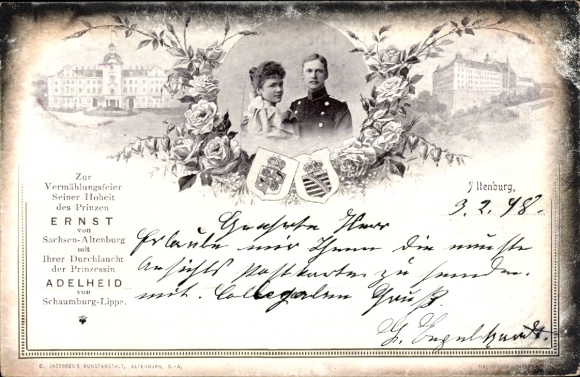 Zur
Vermählungsfeier
Seiner Hoheit
des Prinzen
ERNST
von
Sachsen-Altenburg
mit
Ihrer Durchlaucht
der Prinzessin
ADELHEID
von
Schaumburg-Lippe.
Altenburg,
3.2.98.
Geehrte Herr
Erlaube mir Ihnen die neuste
Ansichts Postkarte zu senden.
mit. Collegialen Gruß.
G. Engelhardt.
C. JACOBSEN'S KUNSTANSTALT, ALTENBURG, S.-A.